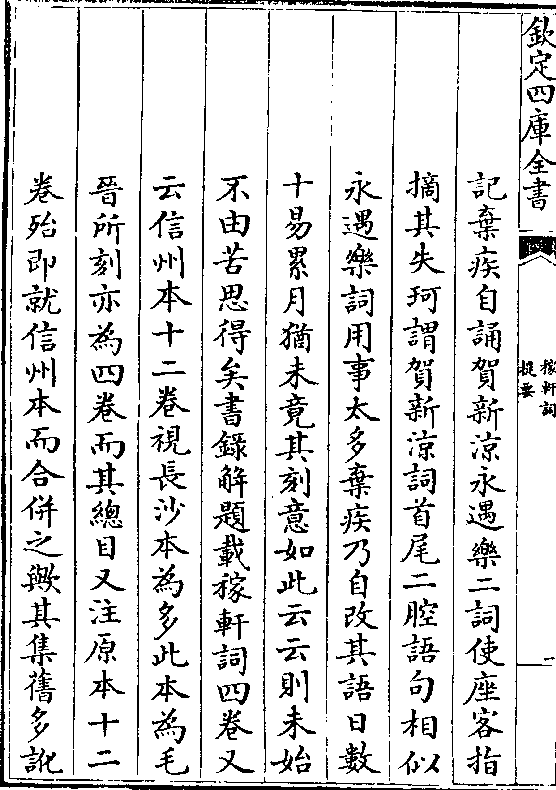 欽定四庫全書
稼軒詞
提要
一
記棄疾自誦賀新涼永遇樂二詞使座客指
摘其失珂謂賀新涼詞首尾二腔語句相似
永遇樂詞用事太多棄疾乃自改其語日數
十易累月猶未竟其刻意如此云云則未始
不由苦思得矣書錄解題載稼軒詞四卷又
云信州本十二卷視長沙本為多此本為毛
晉所刻亦為四卷而其總目又注原本十二
卷殆即就信州本而合併之歟其集舊多訛